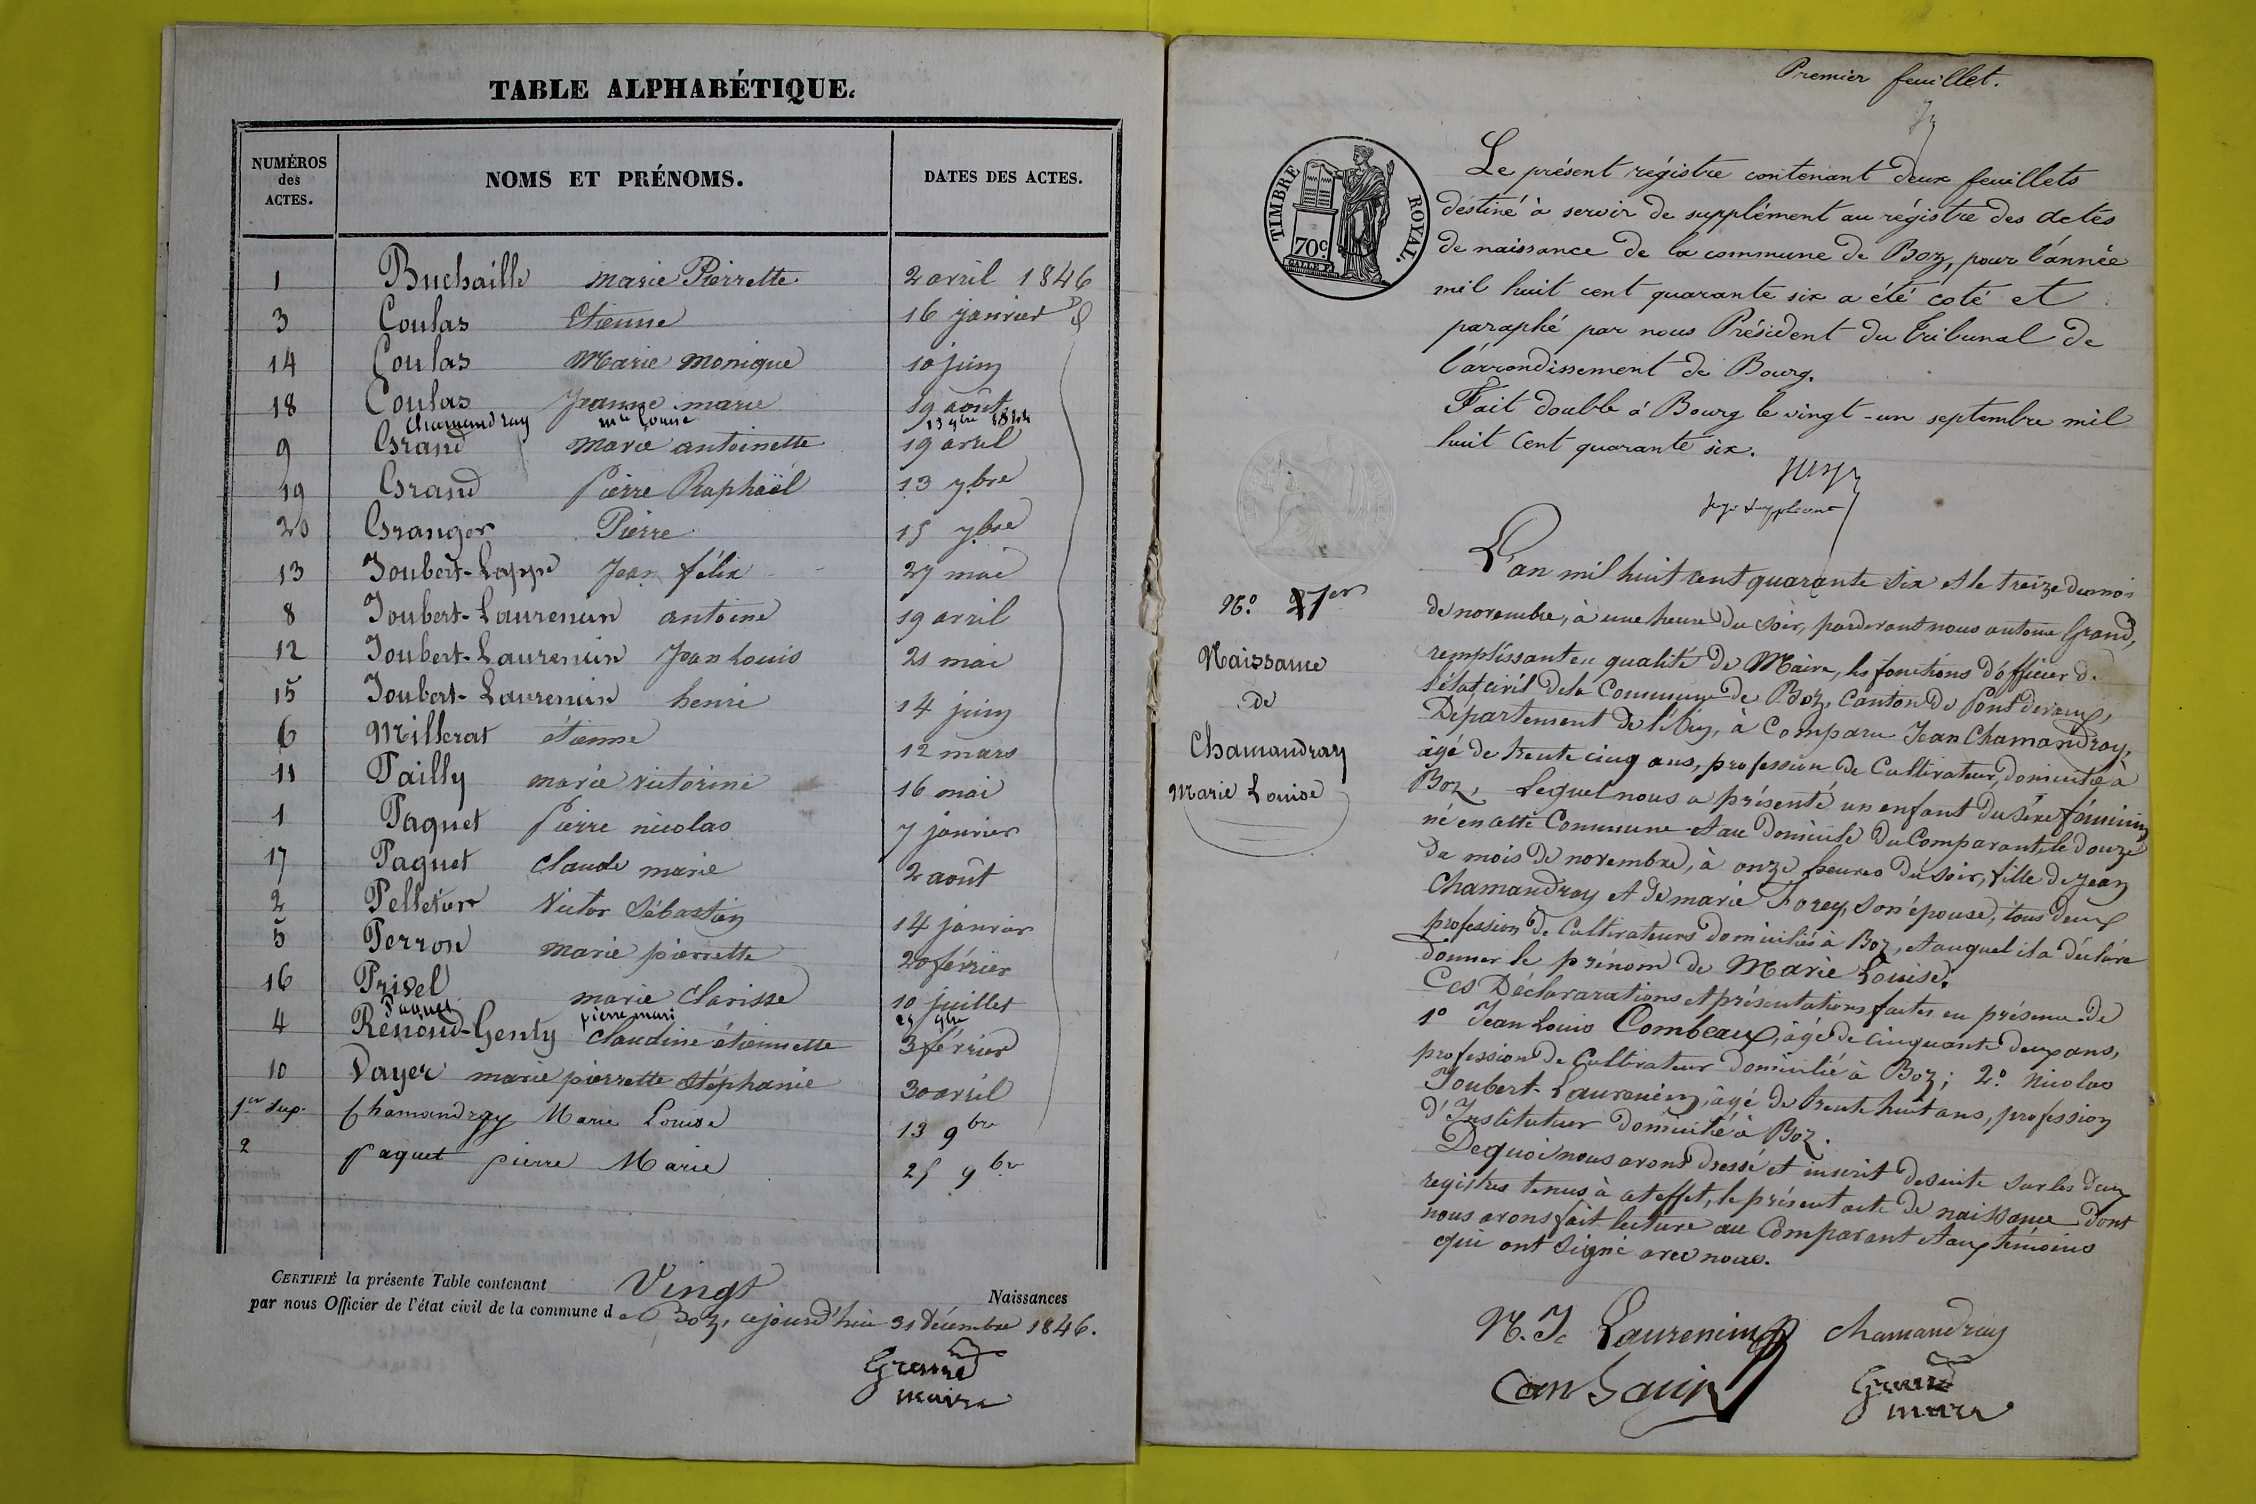 TABLE ALPHABÉTIQUE.
NUMÉROS des ACTES.
NOMS ET PRÉNOMS.
DATES DES ACTES.
1 Buchaille marie Pierrette 2 avril 1846
3 Coulas Etienne 16 janvier
14 Coulas Marie monique 10 juin
18 Coulas Jeanne marie 19 août
Chamandray mie Louise 13 9bre
9 Grand marie antoinette 19 avril
19 Grand Pierre Raphaël 13 7bre
20 Granger Pierre 15 7bre
13 Joubert-Lappe Jean félix 27 mai
8 Joubert-Laurencin antoine 19 avril
12 Joubert-Laurencin Jean Louis 21 mai
15 Joubert-Laurencin henri 14 juin
6 Millerat étienne 12 mars
11 Pailly marie victorine 16 mai
1 Paquet Pierre nicolas 7 janvier
17 Paquet Claude marie 2 août
2 Pelletier Victor Sébastien 14 janvier
5 Perron marie pierrette 20 février
16 Privel marie Clarisse 10 juillet
Paquet pierre mari 25 9bre
4 Renoud-Genty Claudine étiennette 3 février
10 Vayer marie pierrette Stéphanie 30 avril
1er sup. Chamandray Marie Louise 13 9bre
2 paquet pierre Marie 25 9bre
CERTIFIÉ la présente Table contenant Vingt Naissances
par nous Officier de l'état civil de la commune de Boz, cejourd'hui 31 décembre 1846.
Grand
maire
Premier feuillet.
TIMBRE ROYAL.
70c
Le présent régistre contenant deux feuillets
déstiné à servir de supplément au régistre des actes
de naissance de la commune de Boz, pour l'année
mil huit cent quarante six a été coté et
paraphé par nous Président du Tribunal de
l'arrondissement de Bourg.
Fait double à Bourg le vingt-un septembre mil
huit Cent quarante six.
juge suppléant
No. 1er
Naissance
de
Chamandray
Marie Louise
L'an mil huit cent quarante six et le treize du mois
de novembre, à une heure du soir, pardevant nous antoine Grand,
remplissant en qualité de Maire, les fonctions d'officier de
l'état civil de la Commune de Boz, Canton de Pont devaux,
Département de l'Ain, à Comparu Jean Chamandray,
âgé de trente cinq ans, profession de Cultivateur, domicilié à
Boz, Lequel nous a présenté un enfant du séxe féminin
né en cette Commune et au Domicile du Comparant le douze
du mois de novembre, à onze heures du soir, fille de Jean
Chamandray et de marie Forey, son épouse, tous deux
profession de Cultivateurs domiciliés à Boz, et auquel il a déclaré
donner le prénom de Marie Louise.
Ces Déclararations et présentations faites en présence de
1o Jean Louis Combeaux, âgé de Cinquante deux ans,
profession de Cultivateur domicilié à Boz; 2o. Nicolas
Joubert-Laurencin, âgé de trente huit ans, profession
d'Instituteur domicilié à Boz.
De quoi nous avons dressé et inscrit de suite sur les deux
registres tenus à cet effet, le présent acte de naissance dont
nous avons fait lecture au Comparant et aux témoins
qui ont signé avec nous.
N. J. Laurencin Chamandray
Grand
maire